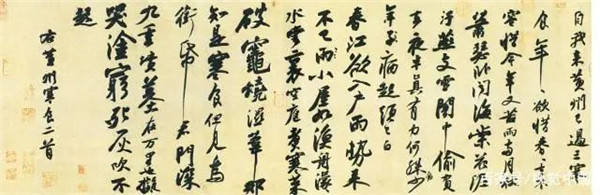 自我來黃州已過三寒
食年々欲惜春春去不
容惜今年又苦雨兩月秋
蕭瑟臥聞海棠花泥
汙燕支雪闇中偷負
去夜半真有力何殊少
年子病起頭已白
春江欲入戶雨勢來
不已雨小屋如漁舟濛々
水雲裏空庖煮寒菜
破竈燒濕葦那
知是寒食但見烏
銜帋君門深
九重墳墓在万里也擬
哭塗窮死灰吹不
起
右黃州寒食二首